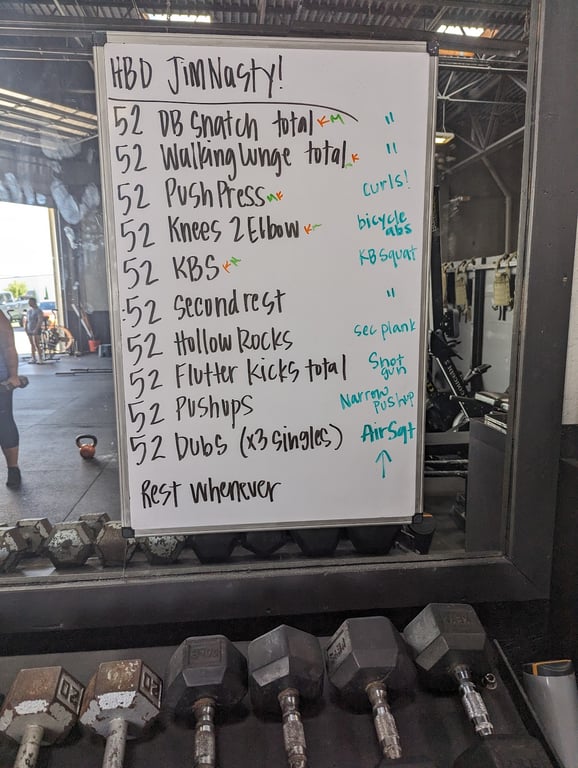 HBD JimNasty!
52 DB Snatch total KM "
52 Walking Lunge total K "
52 Push Press MK curls!
52 Knees 2 Elbow K bicycle abs
52 KBS KM KB Squat
52 Second rest "
52 Hollow Rocks sec plank
52 Flutter Kicks total Shot gun
52 Pushups Narrow pushup
52 Dubs (x3 singles) Air Sqt
Rest whenever
20
20